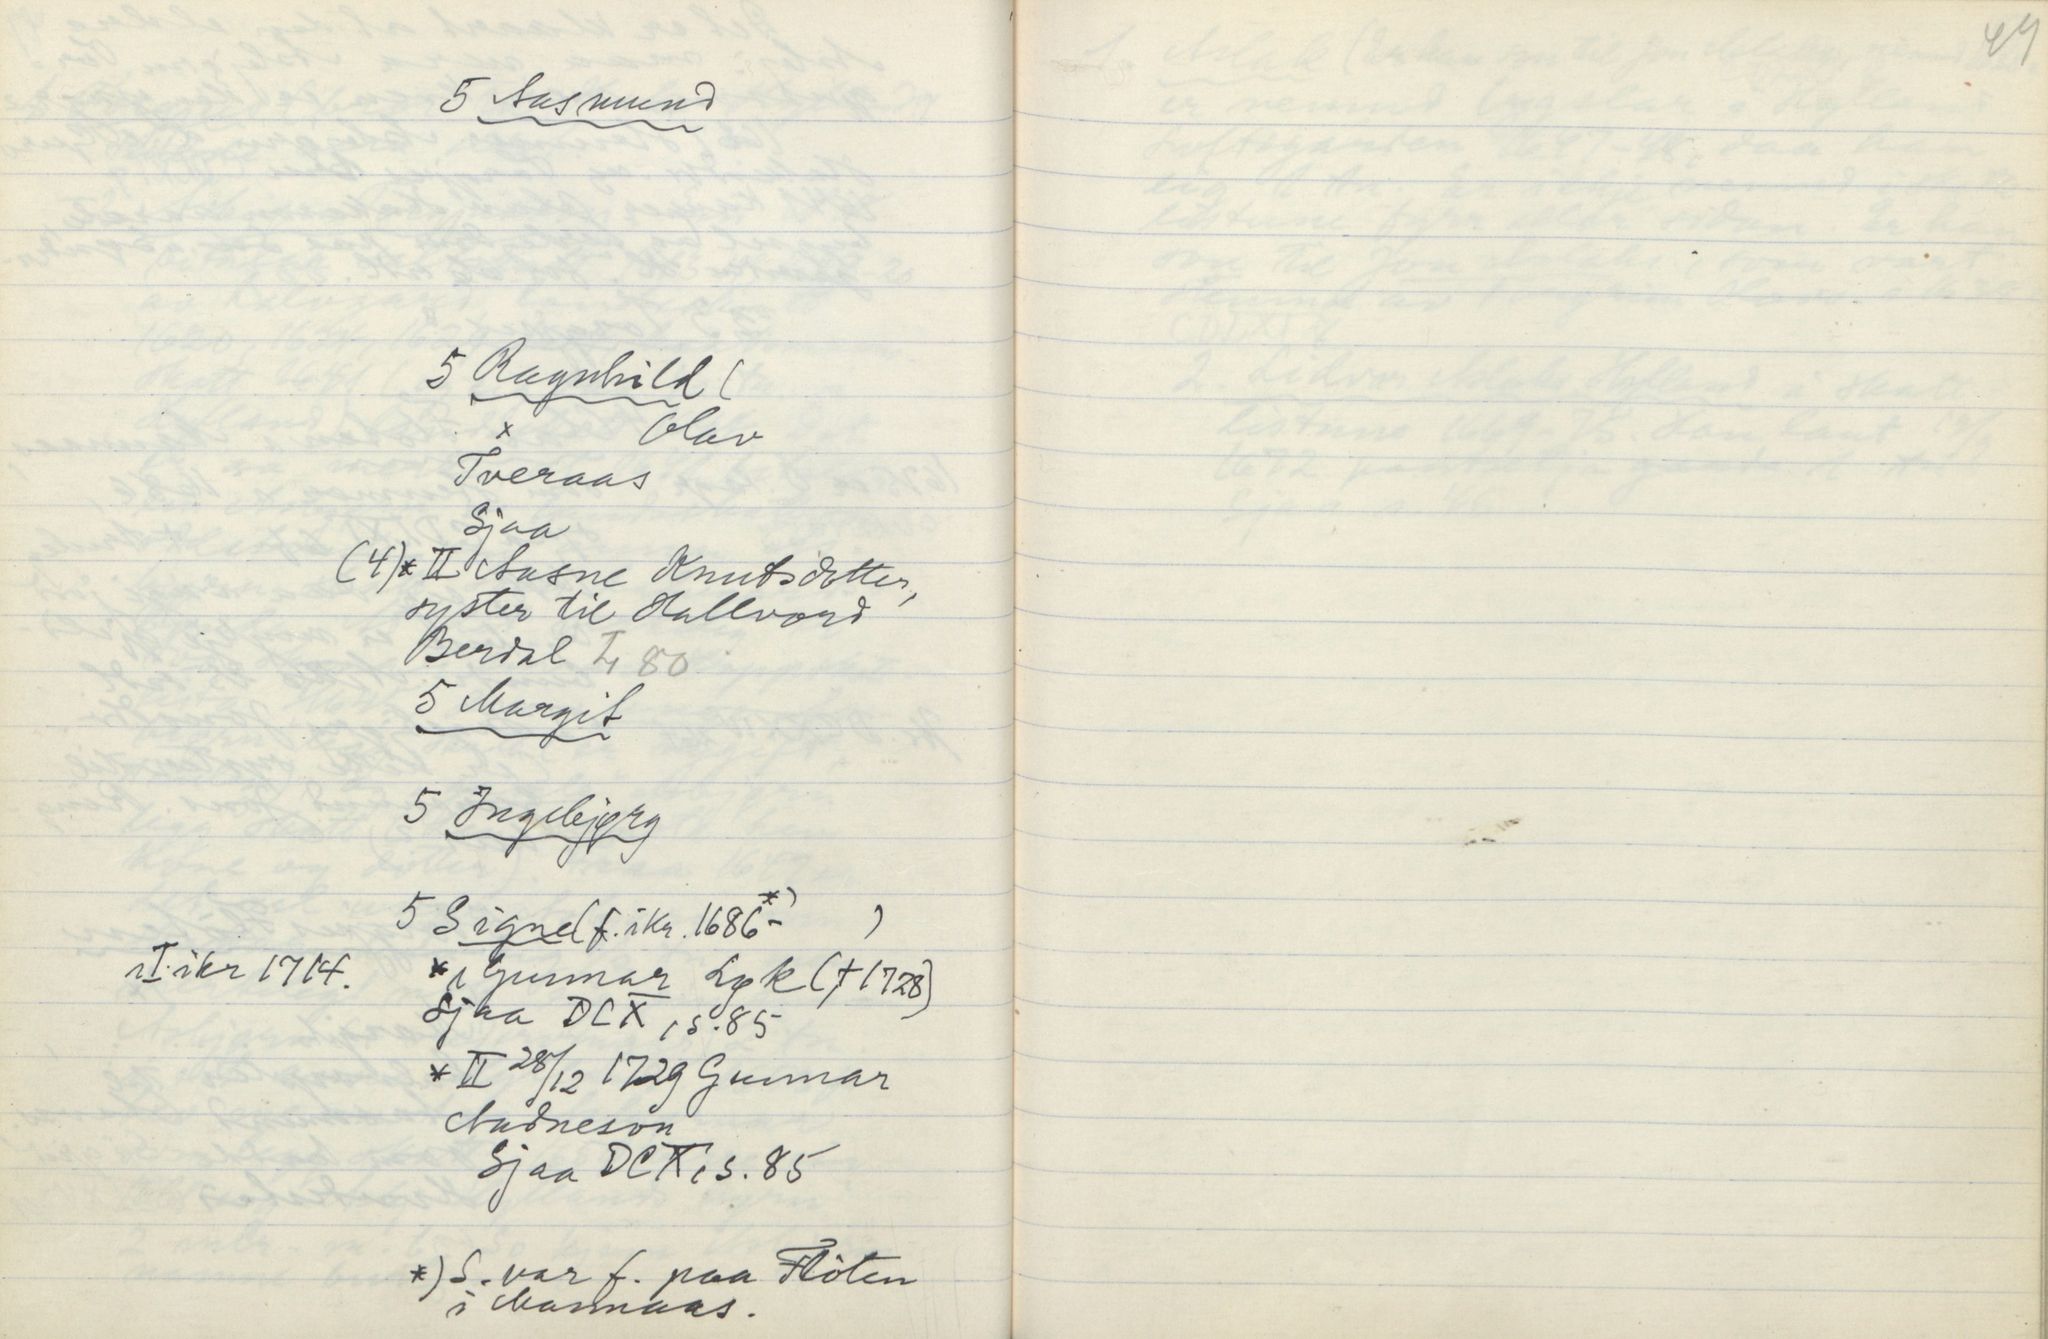 49
5 Aasmund
5 Ragnhild (
x Olav
Tveraas
Sjaa
(4) * II Aasne Knutsdotter,
syster til Hallvord
Berdal I, 80
5 Margit
5 Ingebjørg
5 Signe (f. ikr. 1686 *) - )
I. ikr 1714.
* Gunnar Løk († 1728)
Sjaa DCX, s. 85
* II 28/12 1729 Gunnar
Aadneson
Sjaa DCX, s. 85
*) S. var f. paa Flöten
i